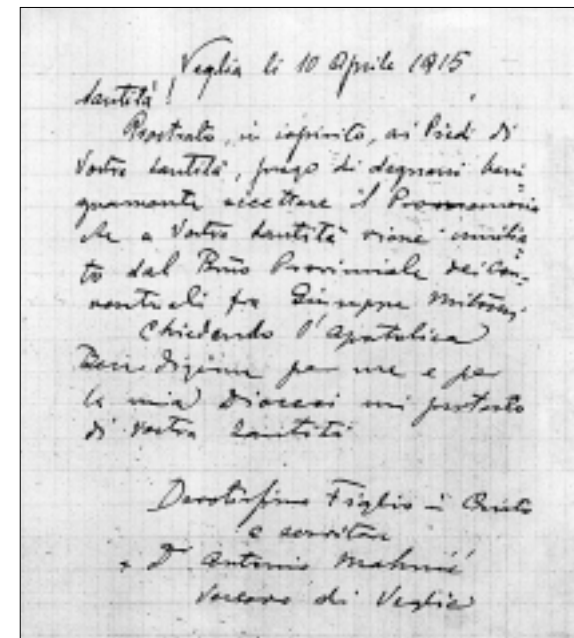 Veglia li 10 Aprile 1915
Santità!
Prostrato, in ispirito, ai Piedi di
Vostra Santità, prego di degnarsi beni
gnamente accettare il Promemoria
che a Vostra Santità viene umilia
to dal Provinciale dei Con-
ventuali fra Giuseppe
Chiedendo l'Apostolica
Benedizione per me e per
la mia Diocesi mi protesto
di Vostra Santità
Devotissimo Figlio in Cristo
e servitore
+ D Antonio Mahnić
Vescovo di Veglia